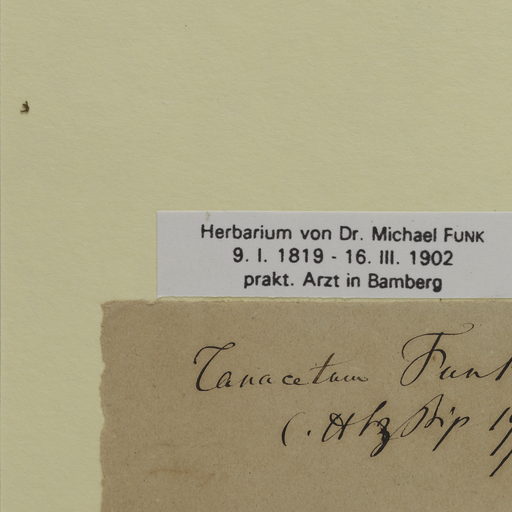 Herbarium von Dr. Michael FUNK
9. I. 1819 - 16. III. 1902
prakt. Arzt in Bamberg
Tanacetum Funk
C. H Bip